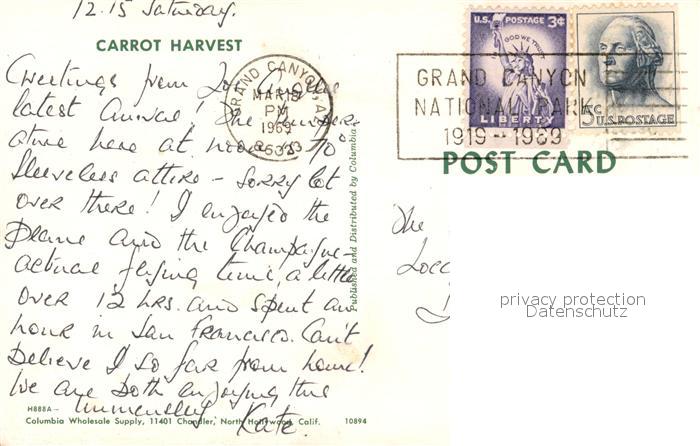 12.15 Saturday.
CARROT HARVEST
Greetings from
latest arrival! The temper-
ature here at noon is 70°
sleeveless attire - sorry lot
over there! I enjoyed the
plane and the Champagne -
actual flying time, a little
over 12 hrs. and spent an
hour in San Francisco. Can't
believe I so far from home!
We are both enjoying this
immensely Kate.
H888A-
Columbia Wholesale Supply, 11401 Chandler, North Hollywood, Calif. 10894
Published and Distributed by Columbia
GRAND CANYON, A
MAR 15
PM
1969
U.S. POSTAGE 3¢
IN GOD WE TRUST
LIBERTY
5c
U.S. POSTAGE
GRAND CANYON
NATIONAL PARK
1919--1969
POST CARD
The
privacy protection
Datenschutz